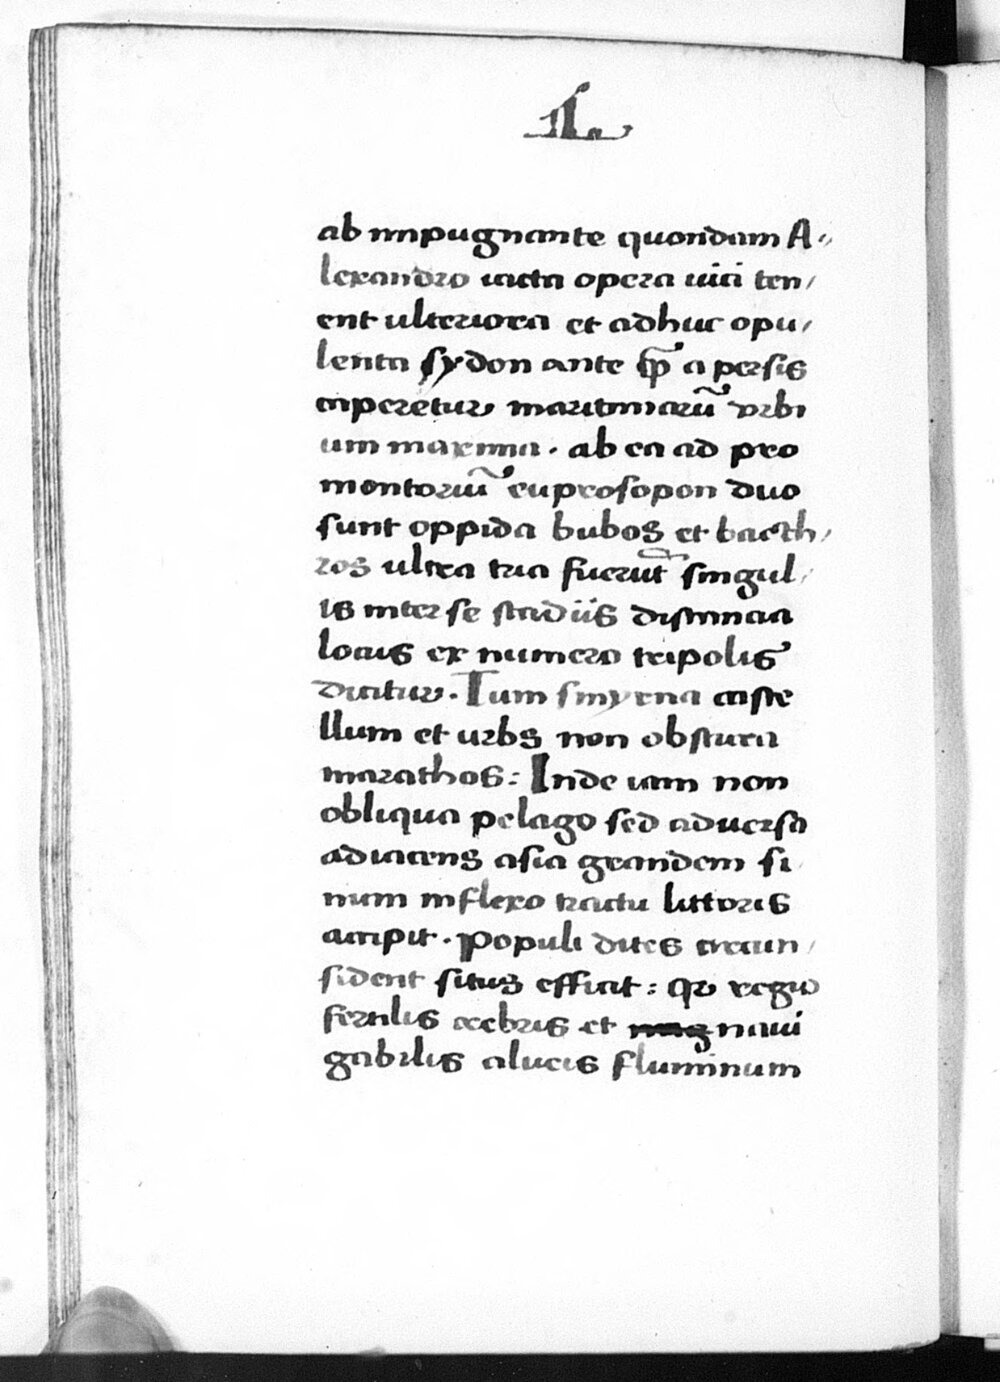 ·I·
ab impugnante quondam A⸗
lexandro iacta opera uici ten⸗
ent ulteriora et adhuc opu⸗
lenta sydon ante q̃ a persis
caperetur maritimarũ vrbi
um maxima. ab ea ad pro
montoriũ euprosopon duo
sunt oppida bubos et bacth⸗
ros ultra tria fuerũt singul⸗
is inter se stadiis distancia
locus ex numero tripolis
dicitur. Tum smyrna caste
llum et urbs non obscura
marathos: Inde iam non
obliqua pelago sed aduersa
adiacens asia grandem si
num inflexo tractu littoris
accipit. Populi dites circun⸗
sident situs efficit: Qr regio
fertilis crebris et naui
gabilis alueis fluminum